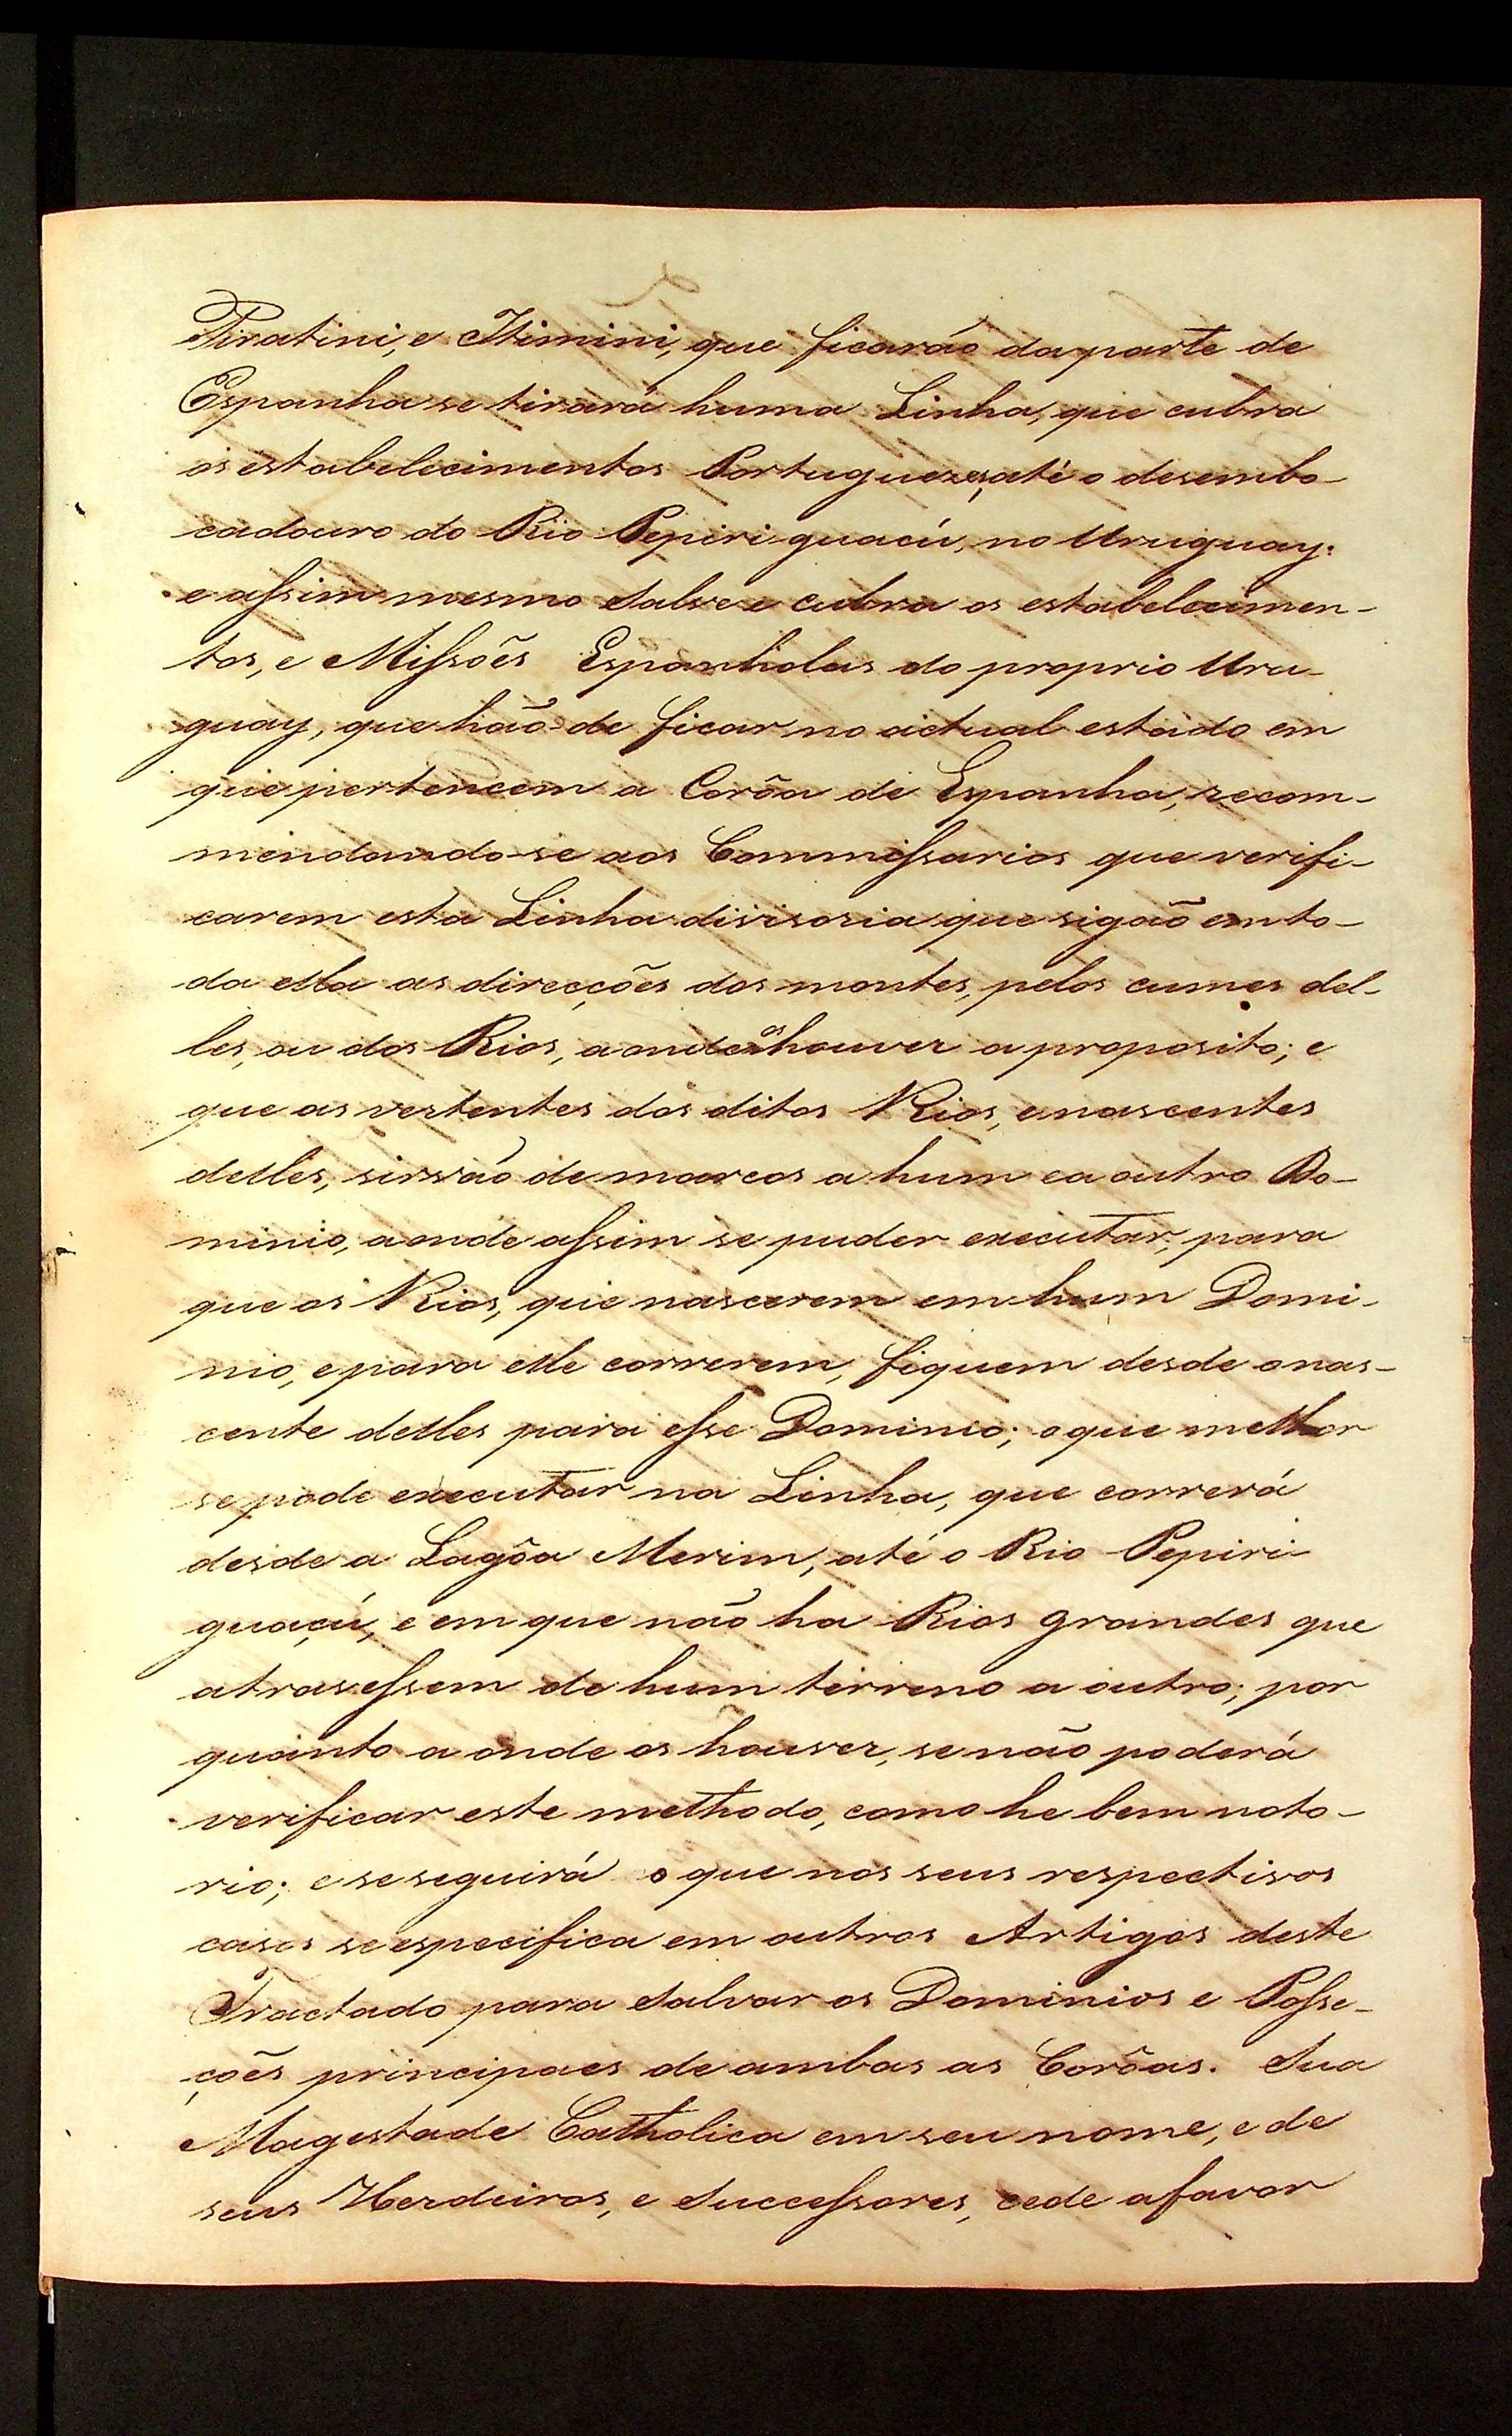 Piratini, e Itimini, que ficaráõ da parte de
Espanha se tirará huma Linha, que cubra
os estabelecimentos Portuguezes, até o desembo-
cadouro do Rio Pepiri-guacú, no Uruguay:
e assim mesmo salve e cubra os estabelecimen-
tos, e Missões Espanholas do proprio Uru-
guay, que hão de ficar no actual estado em
que pertencem a Corôa de Espanha, recom-
mendando-se aos Commissarios que verifi-
carem esta Linha divisoria que sigão em to-
da ella as direcções dos montes, pelos cumes del-
les, ou dos Rios, aonde os houver a proposito; e
que as vertentes dos ditos Rios, e nascentes
delles, sirvão de marcos a hum e a outro Do-
minio, aonde assim se puder executar, para
que os Rios, que nascerem em hum Domi-
nio, e para elle correrem, fiquem desde o nas-
cente delles para esse Dominio; o que melhor
se pode executar na Linha, que correrá
desde a Lagôa Merim, até o Rio Pepiri-
guaçú, e em que não ha Rios grandes que
atravessem de hum terreno a outro; por
quanto aonde os houver, se não poderá
verificar este methodo, como he bem noto-
rio; e se seguirá o que nos seus respectivos
casos se especifica em outros Artigos deste
Tractado para salvar os Dominios e Posse-
ções principaes de ambas as Corôas. Sua
Magestade Catholica em seu nome, e de
seus Herdeiros, e Successores, cede a favor